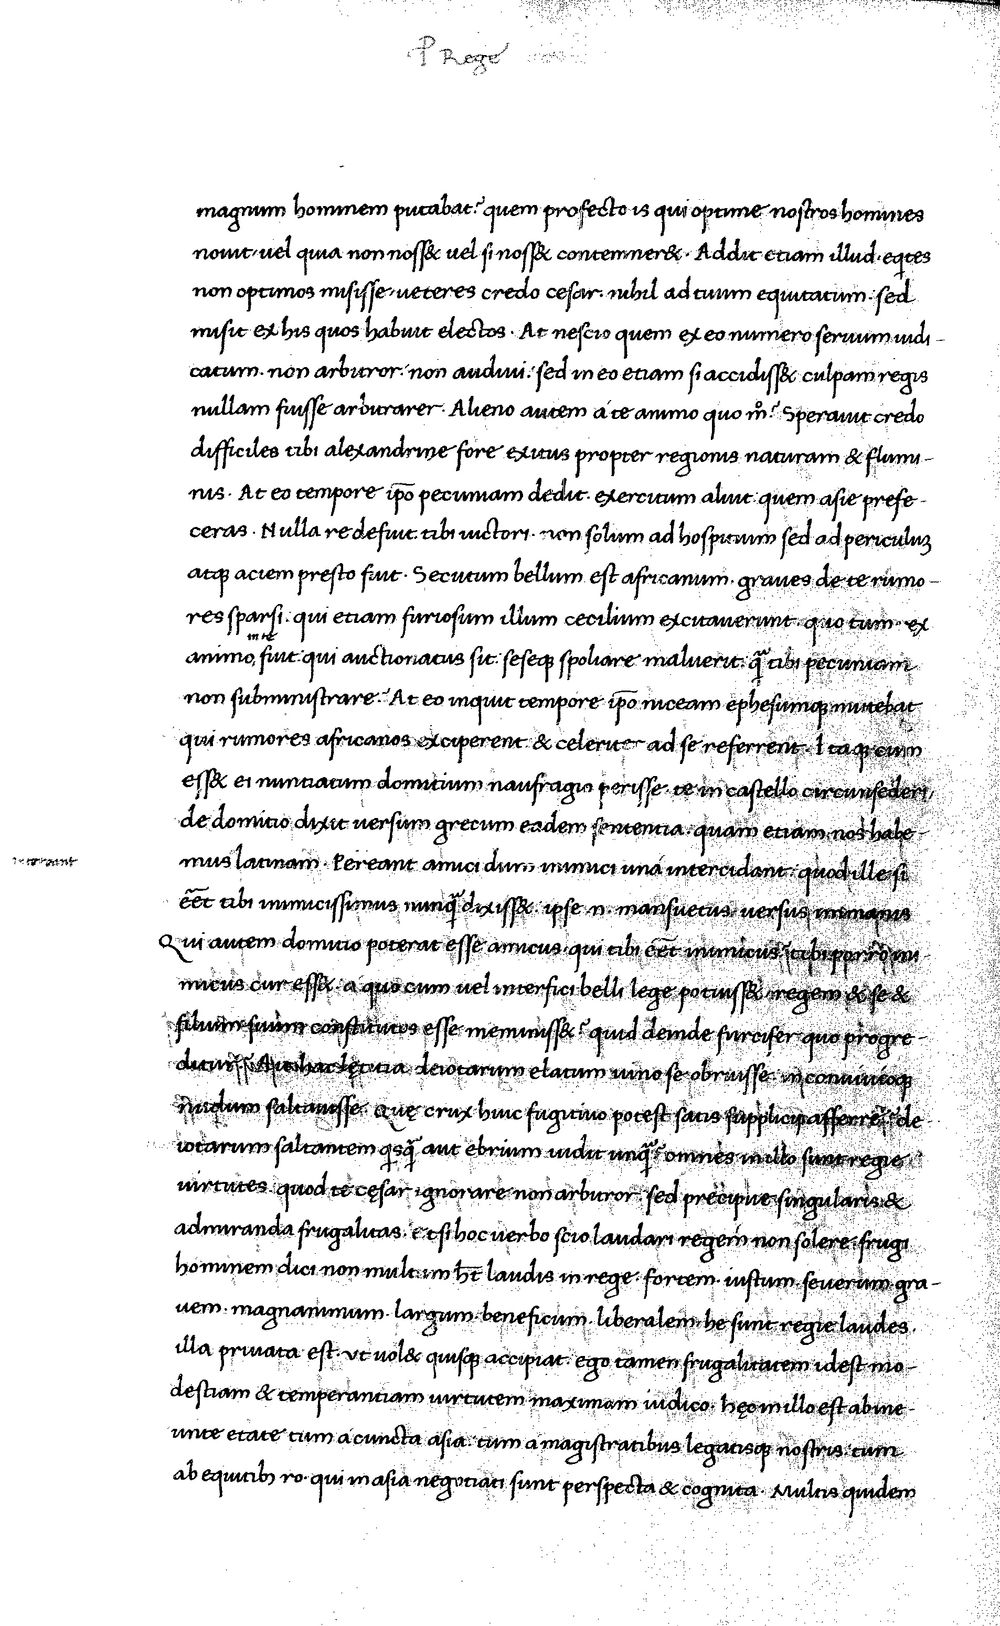 P Rege
magnum hominem putabat? quem profecto is qui optime nostros homines
nouit· uel quia non noss& uel si noss& contemner&· Addit etiam illud· eqites
non optimos misisse· ueteres credo cesar· nihil ad tuum equitatum· sed
misit ex his quos habuit electos· At nescio quem ex eo numero seruum iudi-
catum· non arbitror· non audiui· sed in eo etiam si accidiss& culpam regis
nullam fuisse arbitrarer· Alieno autem a te animo quo m̊? Sperauit credo
difficiles tibi alexandrine fore exitus propter regionis naturam & flumi-
nis· At eo tempore ip̄o pecuniam dedit· exercitum aluit· quem asie prefe-
ceras· Nulla re defuit· tibi uictori· non solum ad hospitium sed ad periculuꝫ
atqꝫ aciem presto fuit· Secutum bellum est africanum· graues de te rumo-
res sparsi· qui etiam furiosum illum cecilium excitauerunt· quo tum· ex
in te
animo fuit· qui auctionatus sit· seseqꝫ spoliare maluerit· q̃ tibi pecuniam
non subministrare· At eo inquit tempore ip̄o niceam ephesumqꝫ mittebat
qui rumores africanos exciperent· & celeriter ad se referrent· Itaqꝫ cum
ess& ei nuntiatum domitium naufragio perisse· te in castello circunsederi
de domitio dixit uersum grecum eadem sententia· quam etiam nos habe-
mus latinam· Pereant amici dum inimici una intercidant· quod ille si
eēt tibi inimicissimus nunq̃ dixiss&· ipse n· mansuetus· uersus immanis
Qui autem domitio poterat esse amicus· qui tibi eēt inimicus? tibi porro ini-
micus cur ess&· a quo cum uel interfici belli lege potuiss& regem & se &
filium suum constitutos esse meminiss&? quid deinde furcifer quo progre-
ditur? Ait hac lętitia deiotarum elatum uino se obruisse· in conuiuioqꝫ
nudum saltauisse· Quę crux huic fugitiuo potest satis supplicii afferre? de-
iotarum saltantem qsq̃ aut ebrium uidit unq̃? omnes in illo sunt regie
uirtutes· quod te cęsar ignorare non arbitror· sed precipue singularis &
admiranda frugalitas· etsi hoc uerbo scio laudari regem non solere· frugi
hominem dici non multum h̄t laudis in rege· fortem· iustum· seuerum· gra-
uem· magnanimum· largum· beneficum· liberalem· he sunt regie laudes·
illa priuata est· ut uol& quisqꝫ accipiat· ego tamen frugalitatem idest mo-
destiam & temperantiam uirtutem maximam iudico· hęc in illo est ab ine-
unte etate tum a cuncta asia· tum a magistratibus legatisqꝫ nostris· tum
ab equitibꝫ ro· qui in asia negotiati sunt perspecta & cognita· Multis quidem